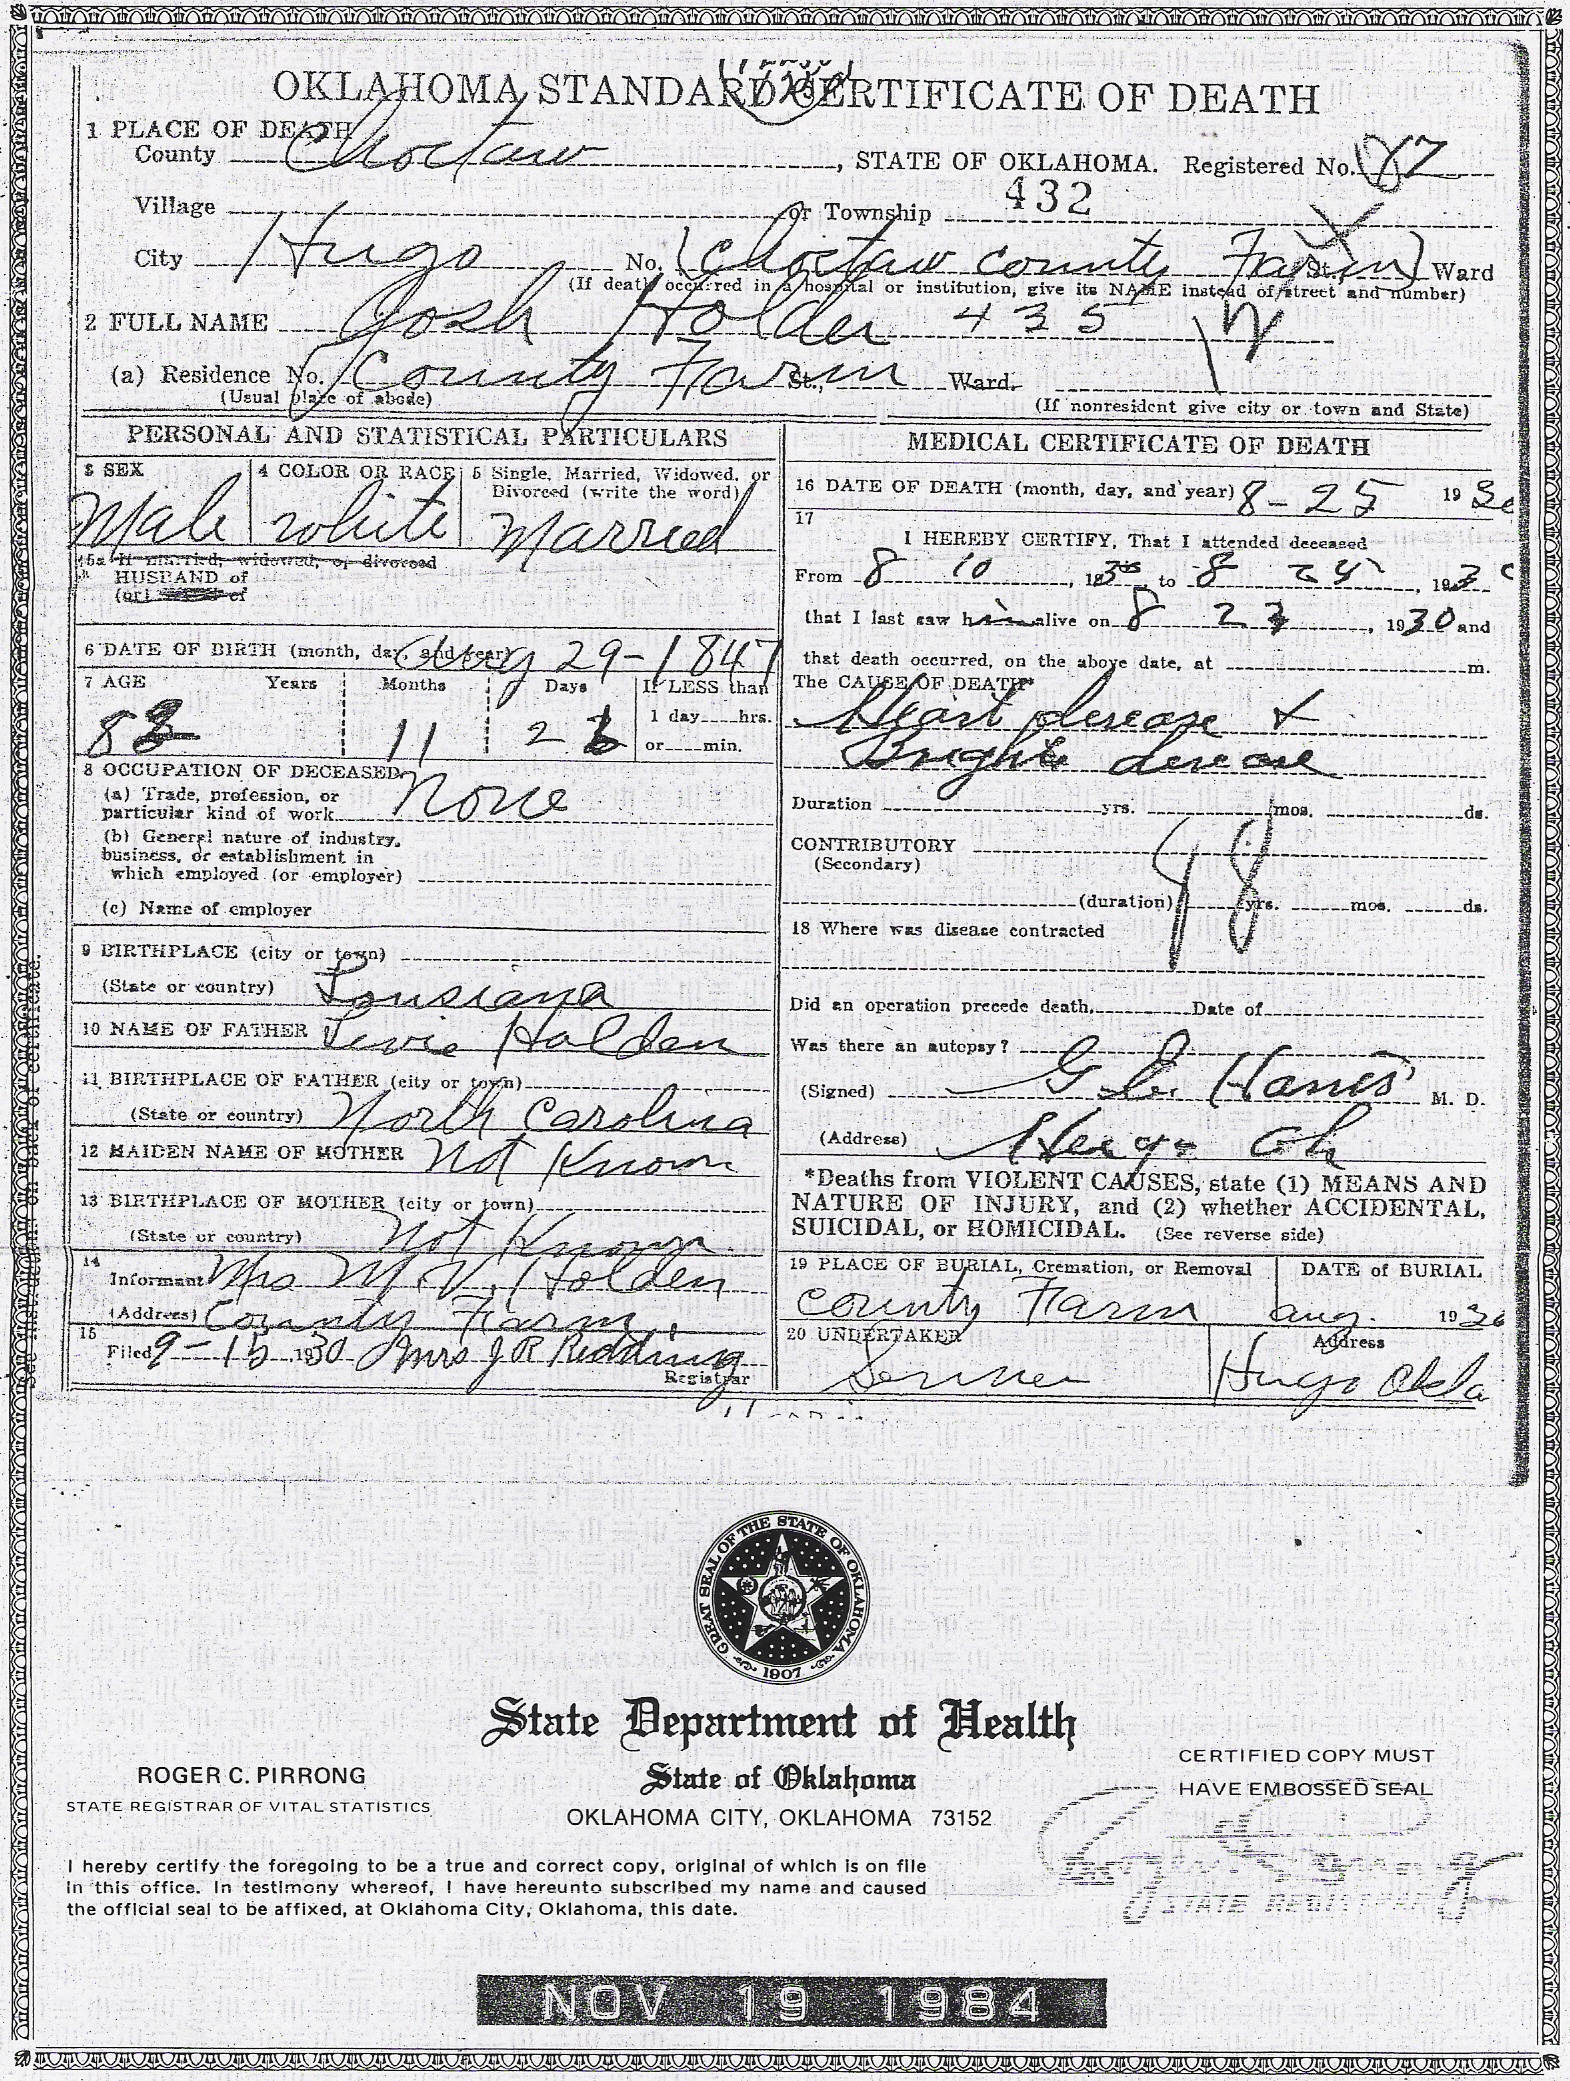 OKLAHOMA STANDARD CERTIFICATE OF DEATH
1 PLACE OF DEATH
County Choctaw, STATE OF OKLAHOMA. Registered No. 87
Village or Township 432
City Hugo No. (Choctaw County Farm) St., Ward
(If death occurred in a hospital or institution, give its NAME instead of street and number)
2 FULL NAME Josh Holden 435 12
(a) Residence No. County Farm St., Ward.
(Usual place of abode)
(If nonresident give city or town and State)
PERSONAL AND STATISTICAL PARTICULARS
3 SEX
Male
4 COLOR OR RACE
White
5 Single, Married, Widowed, or
Divorced (write the word)
Married
5a If married, widowed, or divorced
HUSBAND of
(or) of
6 DATE OF BIRTH (month, day, and year) Aug 29-1847
7 AGE Years Months Days If LESS than
11 1 day hrs.
or min.
8 OCCUPATION OF DECEASED
(a) Trade, profession, or
particular kind of work None
(b) General nature of industry,
business, or establishment in
which employed (or employer)
(c) Name of employer
9 BIRTHPLACE (city or town)
(State or country) Lousiana
10 NAME OF FATHER Holden
11 BIRTHPLACE OF FATHER (city or town)
(State or country) North Carolina
12 MAIDEN NAME OF MOTHER Not Known
13 BIRTHPLACE OF MOTHER (city or town)
(State or country) Not Known
14
Informant Mrs M. V. Holden
(Address) County Farm
15
Filed 9-15 1930 Mrs J R Redding
Registrar
MEDICAL CERTIFICATE OF DEATH
16 DATE OF DEATH (month, day, and year) 8-25 1930
17
I HEREBY CERTIFY, That I attended deceased
From 8 10, 1930 to 8 25, 1930
that I last saw him alive on 8 23, 1930 and
that death occurred, on the above date, at m.
The CAUSE OF DEATH*
Heart disease +
Brights disease
Duration yrs. mos. ds.
CONTRIBUTORY
(Secondary)
98
(duration) yrs. mos. ds.
18 Where was disease contracted
Did an operation precede death, Date of
Was there an autopsy?
(Signed) G. E. Harris M. D.
(Address) Hugo Ok
*Deaths from VIOLENT CAUSES, state (1) MEANS AND
NATURE OF INJURY, and (2) whether ACCIDENTAL,
SUICIDAL, or HOMICIDAL. (See reverse side)
19 PLACE OF BURIAL, Cremation, or Removal
County Farm
DATE of BURIAL
Aug. 1930
20 UNDERTAKER
Address
Hugo Okla
GREAT SEAL OF THE STATE OF OKLAHOMA
1907
State Department of Health
State of Oklahoma
OKLAHOMA CITY, OKLAHOMA 73152
ROGER C. PIRRONG
STATE REGISTRAR OF VITAL STATISTICS
CERTIFIED COPY MUST
HAVE EMBOSSED SEAL
STATE REGISTRAR
I hereby certify the foregoing to be a true and correct copy, original of which is on file
in this office. In testimony whereof, I have hereunto subscribed my name and caused
the official seal to be affixed, at Oklahoma City, Oklahoma, this date.
NOV 19 1984